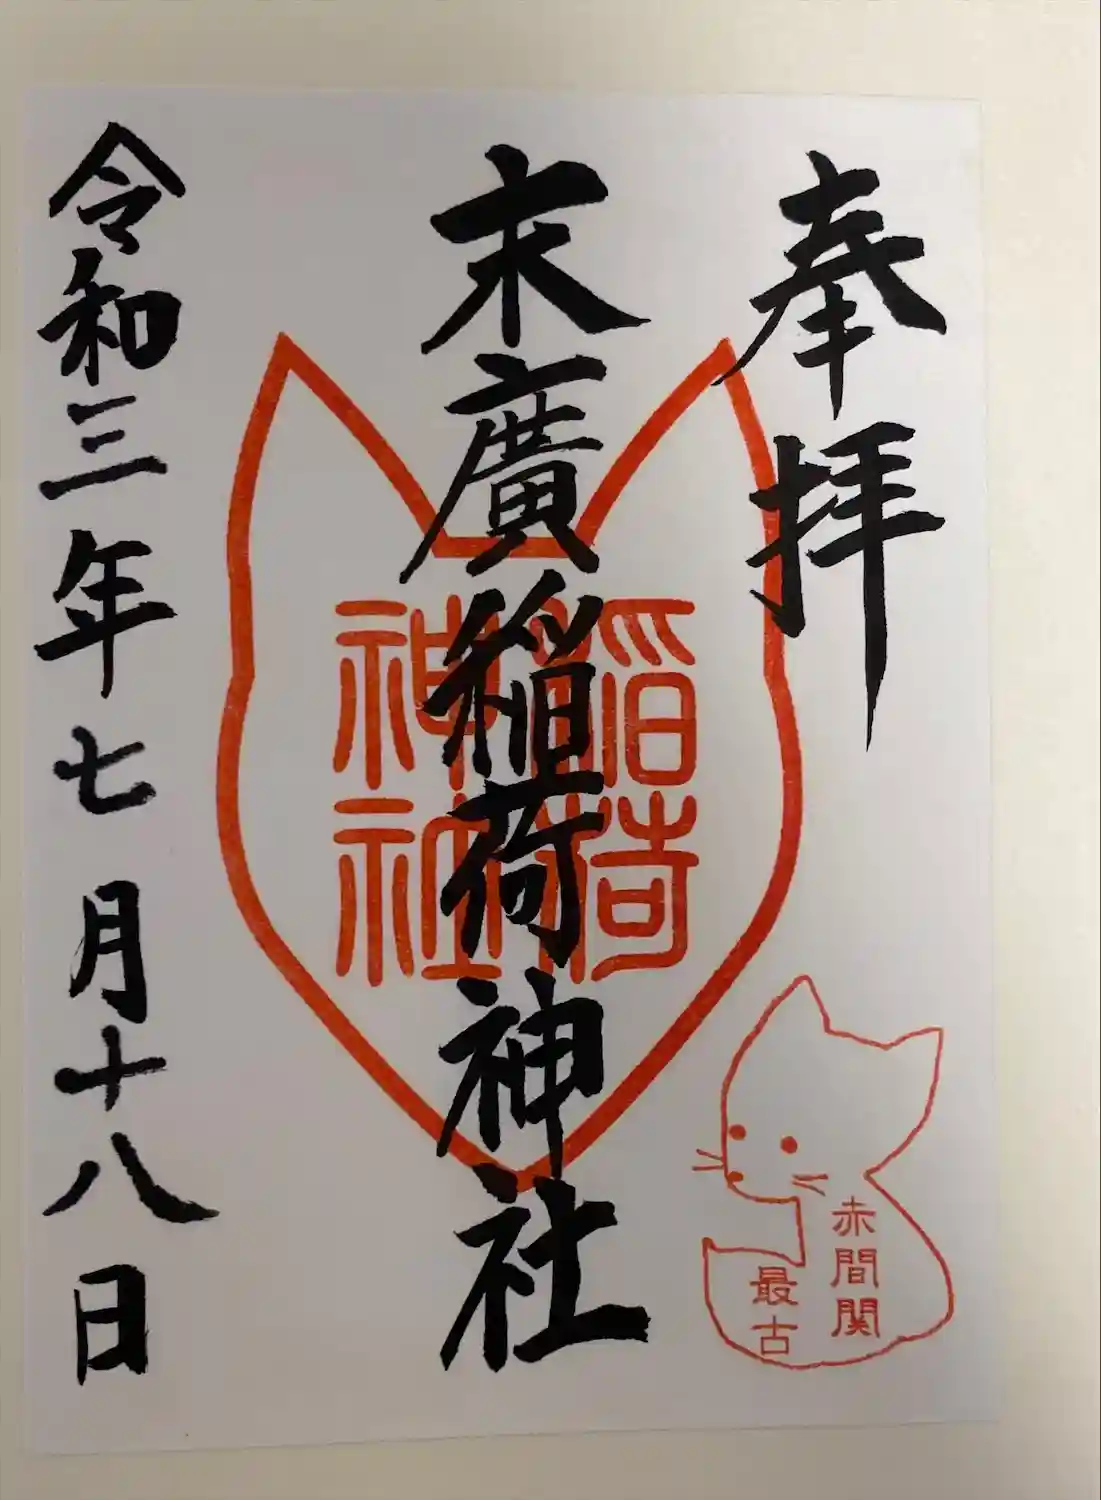 奉拝
末廣稲荷神社
稲荷
神社
令和三年七月十八日
赤間関
最古